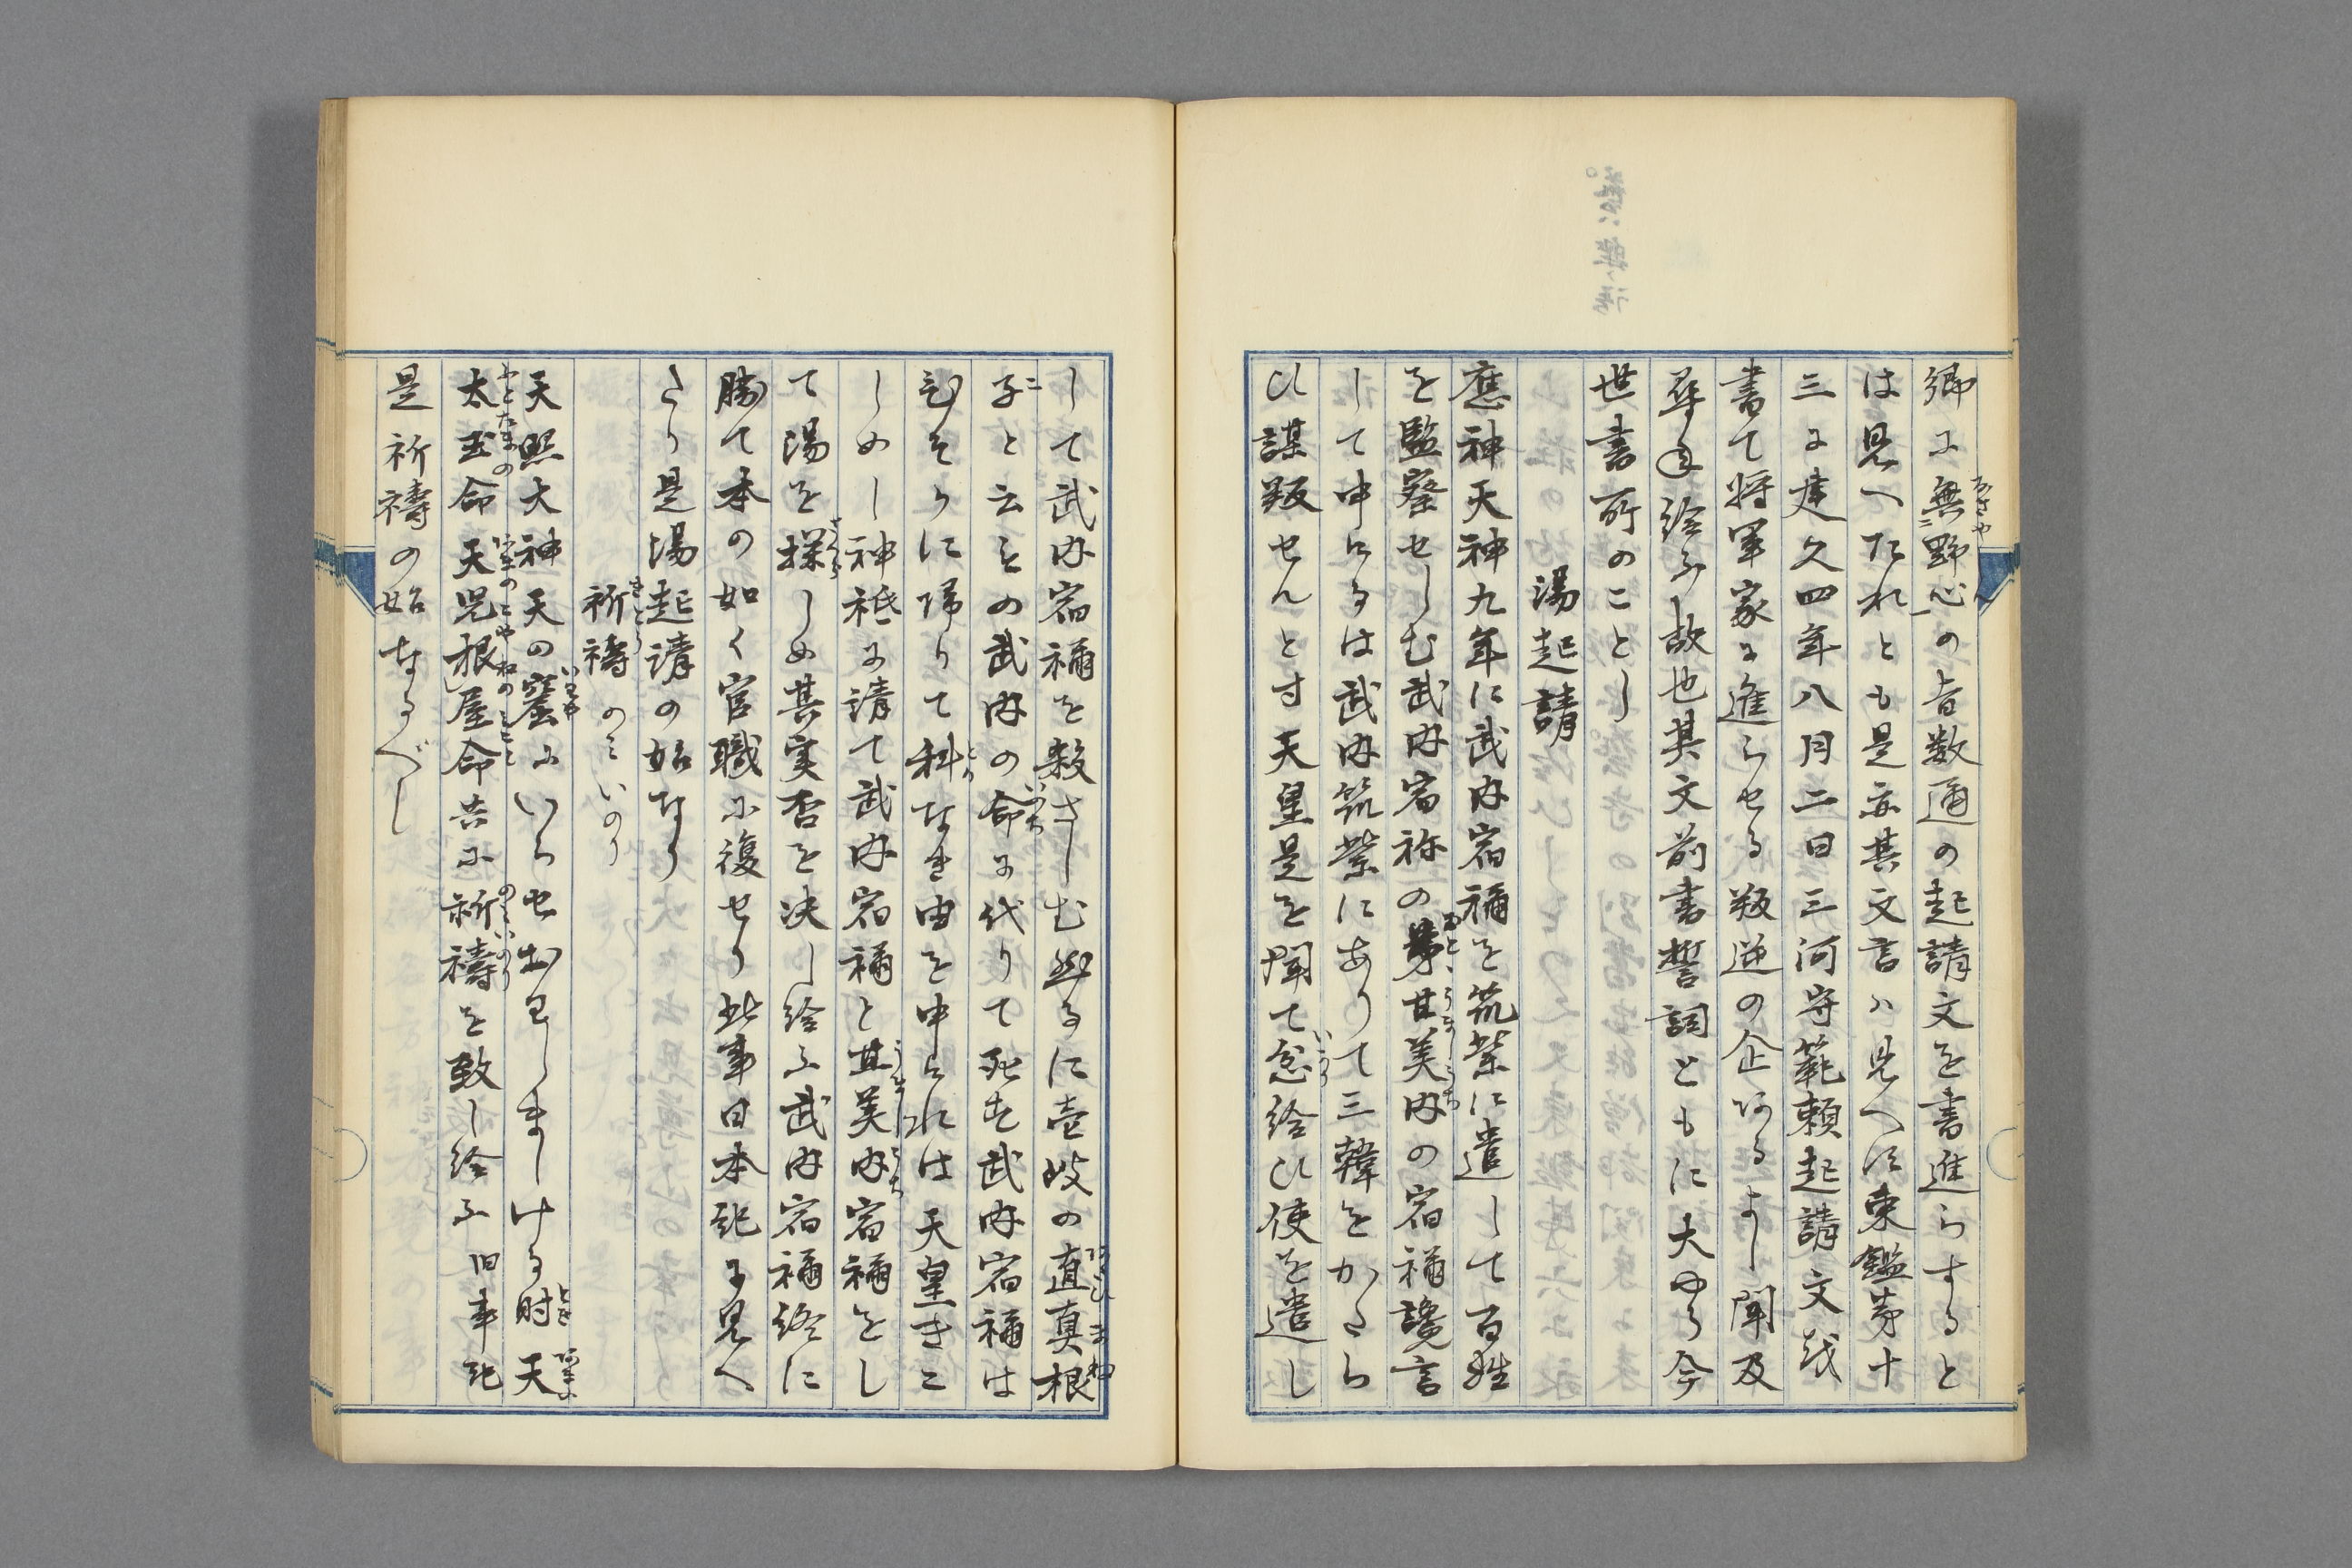 卿に無二野心一の旨数通の起請文を書進らすると
は見へたれとも是亦其文言ハ見へす東鑑第十
三に建久四年八月二日三河守範頼起請文を
書て将軍家に進らせる叛逆の企あるよし聞及
尋給ふ故也其文前書誓詞ともに大やう今
世書所のことし
湯起請
應神天神九年に武内宿禰を筑紫に遣して百姓
を監察せしむ武内宿祢の弟甘美内の宿禰讒言
して申けるは武内筑紫にありて三韓をかたら
ひ謀叛せんとす天皇是を聞て忿給ひ使を遣し
して武内宿禰を殺さしむ然るに壱岐の直真根
子と云もの武内の命に代りて死す武内宿禰は
ひそかに帰りて科なき由を申けれは天皇きこ
しめし神祇に請て武内宿禰と甘美内宿禰をし
て湯を探しめ其実否を决し給ふ武内宿禰終に
勝て本の如く官職に復せり此事日本紀に見へ
たり是湯起請の始なり
祈禱 のみいのり
天照大神天の窟にいらせおわしましける時天
太玉命天児根屋命共に祈禱を致し給ふ旧事紀
是祈禱の始なるべし